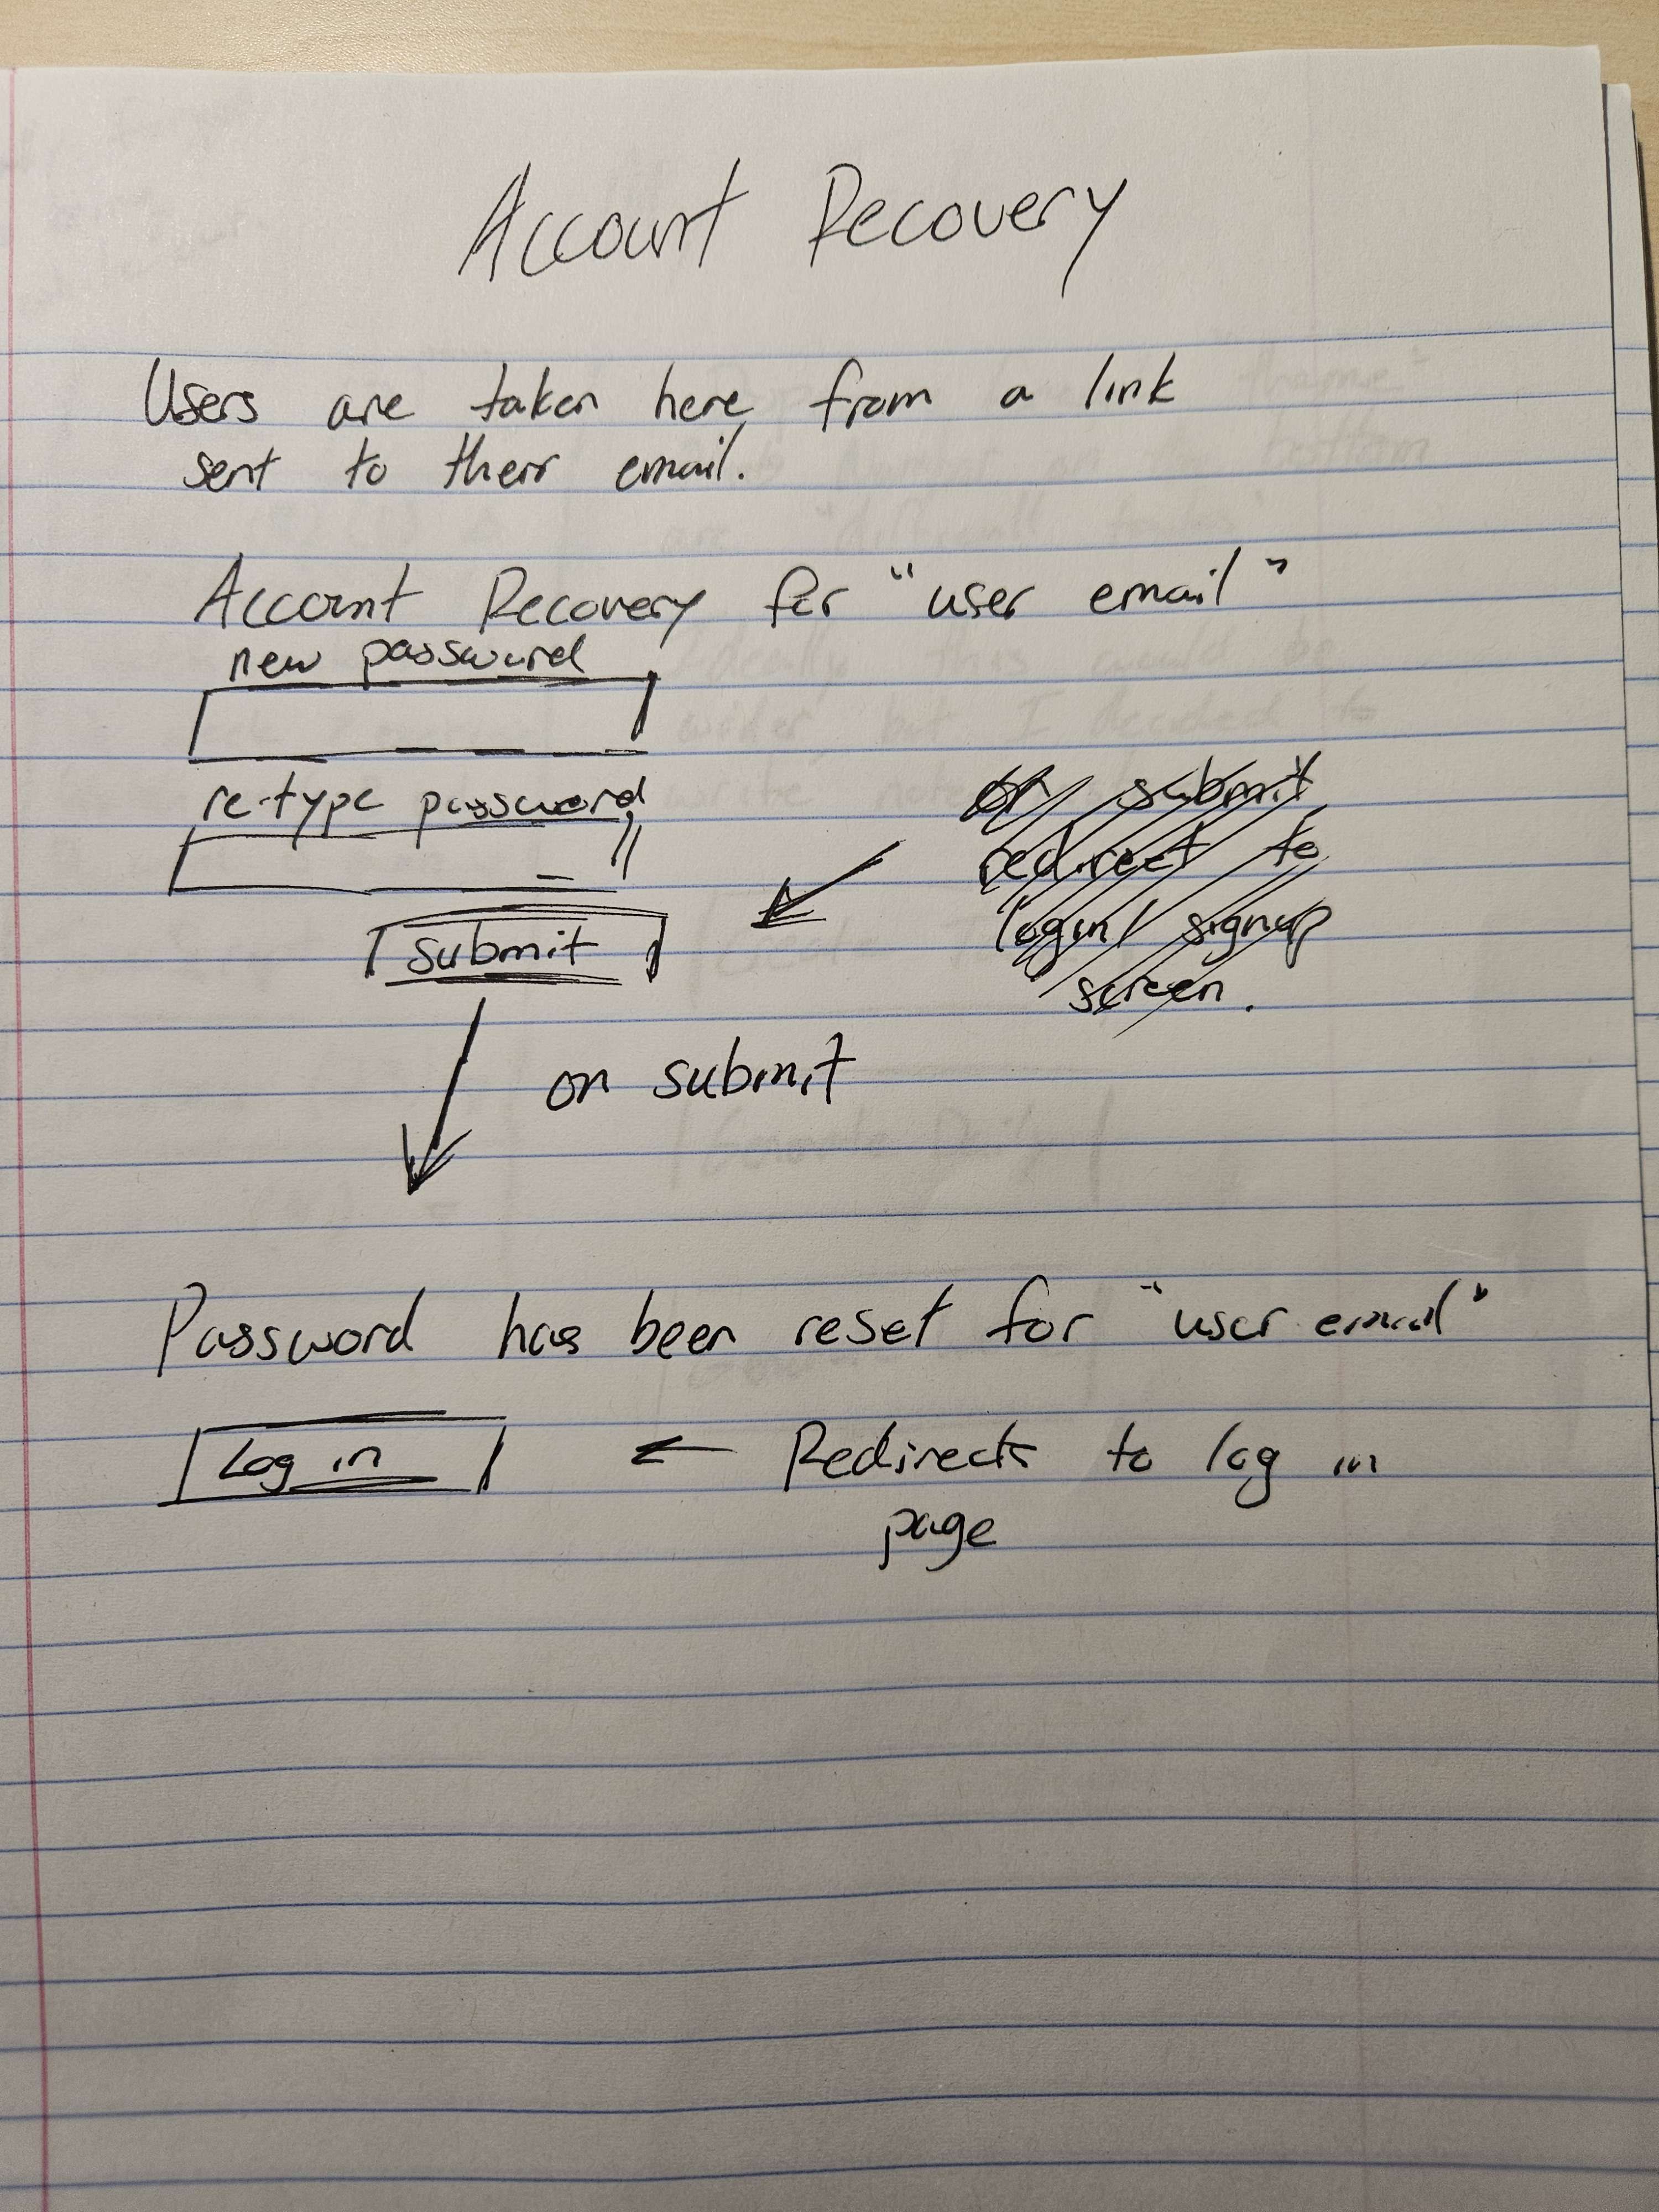 Account Recovery
Users are taken here from a link
sent to their email.
Account Recovery for "user email"
new password
re-type password
on submit
redirect to
login/signup
screen.
submit
on submit
Password has been reset for "user email"
Log in ← Redirects to log in
page